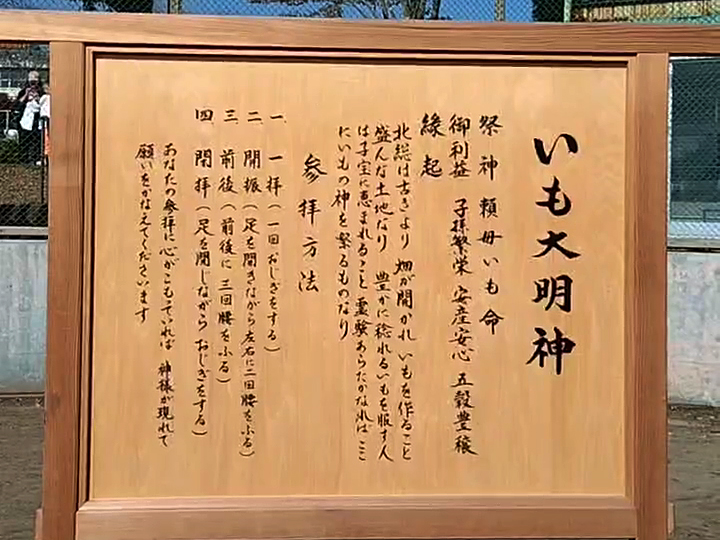 いも大明神
祭神 頼母いも命
御利益 子孫繁栄 安産安心 五穀豊穣
縁起
北総は古きより 畑が開かれ いもを作ること
盛んな土地なり 豊かに稔れるいもを服す人
は子宝に恵まれること 霊験あらたかなれば ここ
にいもの神を祭るものなり
参拝方法
一、一拝(一回おじぎをする)
二、開振(足を開きながら左右に二回腰をふる)
三、前後(前後に三回腰をふる)
四、閉拝(足を閉じながらおじぎをする)
あなたの参拝に心がこもっていれば 神様が現れて
願いをかなえてくださいます